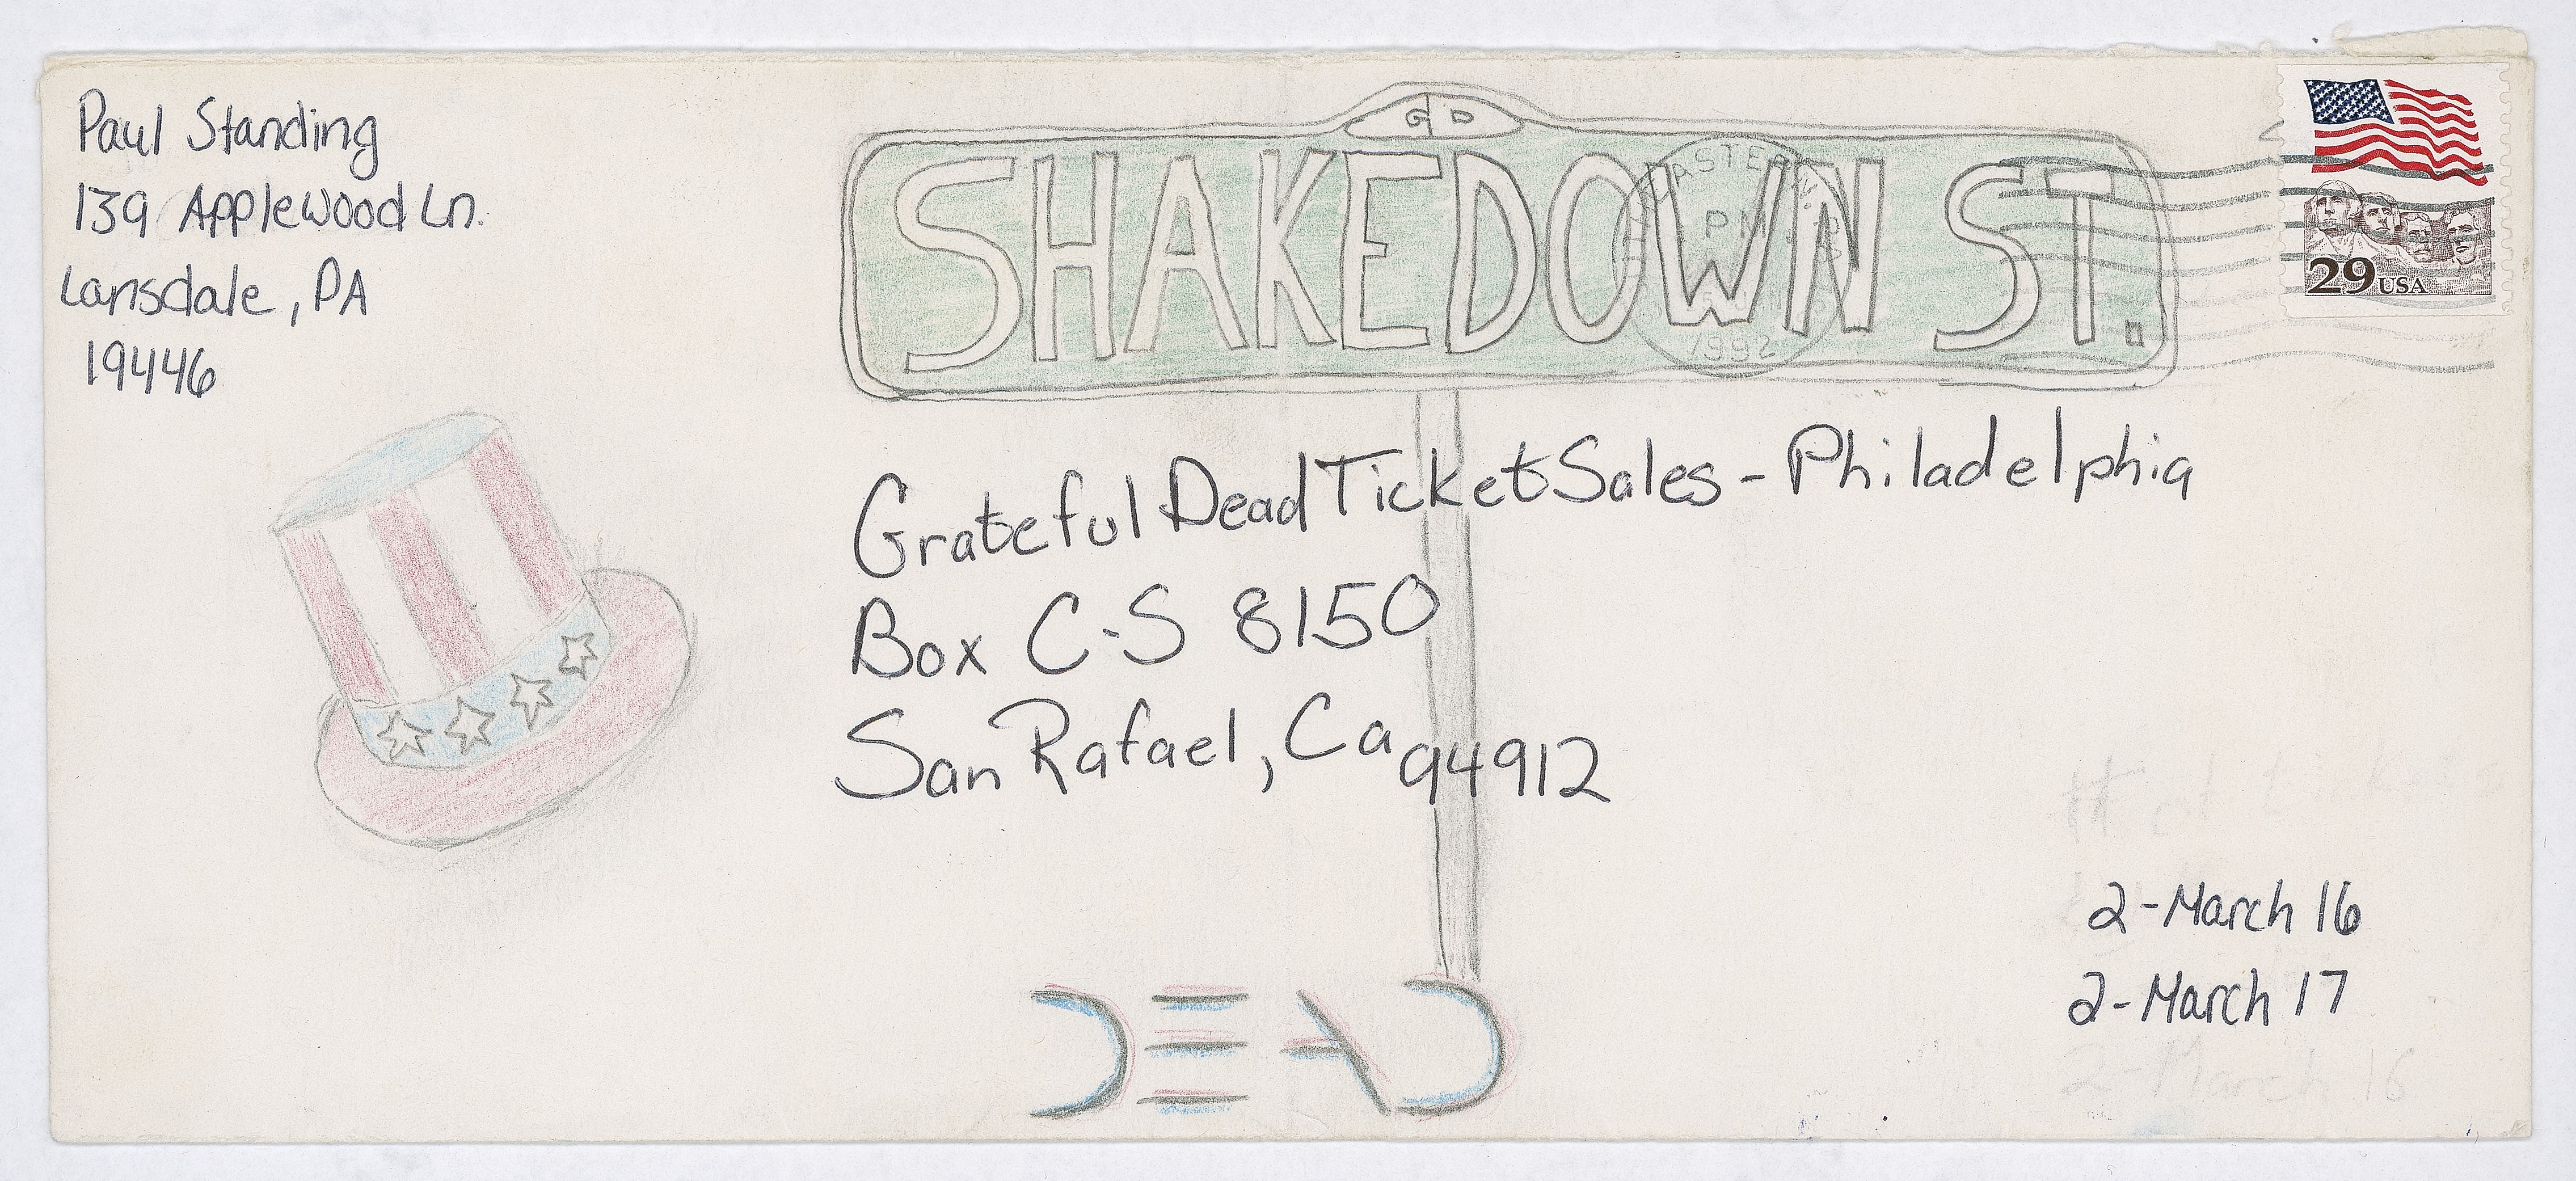 Paul Standing
139 Applewood Ln.
Lansdale, PA
19446
G D
SHAKEDOWN ST.
EASTERN
PM
1992
29 USA
Grateful Dead Ticket Sales - Philadelphia
Box C-S 8150
San Rafael, Ca 94912
2-March 16
2-March 17
2-March 16
DEAD